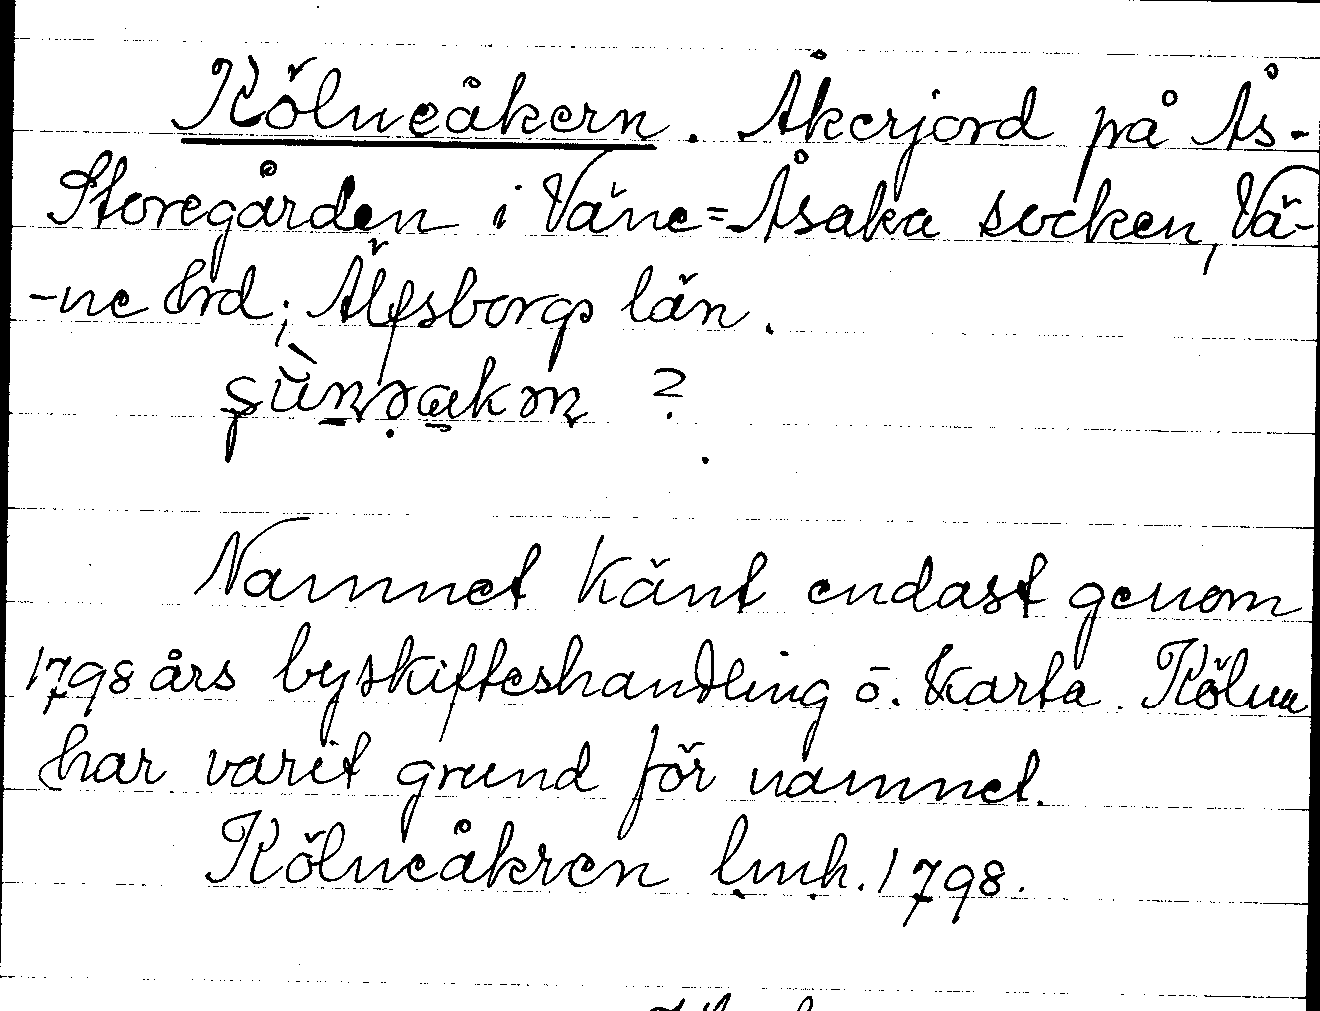 Kölneåkern. Åkerjord på Ås-
Storegården i Väne=Åsaka socken, Vä-
-ne hrd; Älfsborgs län.
?
Namnet känt endast genom
1798 års byskifteshandling o. karta. Kölna
har varit grund för namnet.
Kölneåkren lmh. 1798.